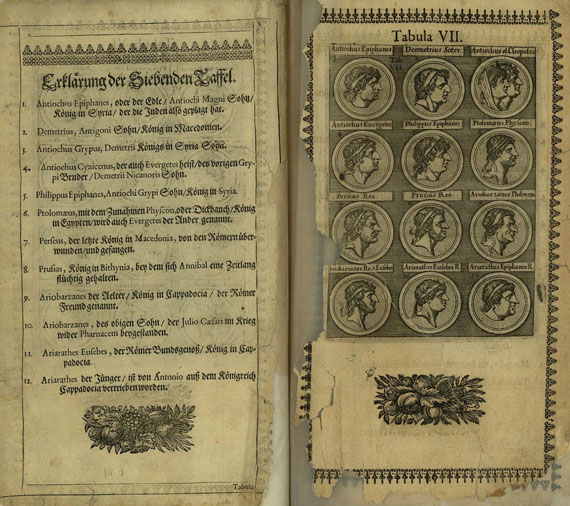 Erklärung der Siebenden Taffel.
1. Antiochus Epiphanes, oder der Edle / Antiochi Magni Sohn /
König in Syria / der die Juden also geplagt hat.
2. Demetrius, Antigoni Sohn / König in Macedonien.
3. Antiochus Grypus, Demetrii Königs in Syria Sohn.
4. Antiochus Cyzicenus, der auch Evergetes heist / des vorigen Gry-
pi Bruder / Demetrii Nicanoris Sohn.
5. Philippus Epiphanes, Antiochi Grypi Sohn / König in Syria.
6. Ptolomæus, mit dem Zunahmen Physcon, oder Dickbauch / König
in Egypten / wird auch Evergetes der Ander genannt.
7. Perseus, der letzte König in Macedonia, von den Römern über-
wunden / und gefangen.
8. Prusias, König in Bithynia, bey dem sich Annibal eine Zeitlang
flüchtig gehalten.
9. Ariobarzanes der Aelter / König in Cappadocia / der Römer
Freund genannt.
10. Ariobarzanes, des obigen Sohn / der Julio Cæsari im Krieg
wider Pharnacem beygestanden.
11. Ariarathes Eusebes, der Römer Bundsgenoß / König in Cap-
padocia.
12. Ariarathes der Jünger / ist von Antonio auß dem Königreich
Cappadocia vertrieben worden.
Tabula
Tabula VII.
Antiochus Epiphanes Demetrius Soter Antiochus et Cleopatra
Tab.
VII.
Antiochus Evergetes Philippus Epiphanes Ptolomæus Physcon
Perseus Rex Prusias Rex Ariobarzanes Philorom
Ariobarzanes Rex Eusebes Ariarathes Eusebes R. Ariarathes Epiphanes R.